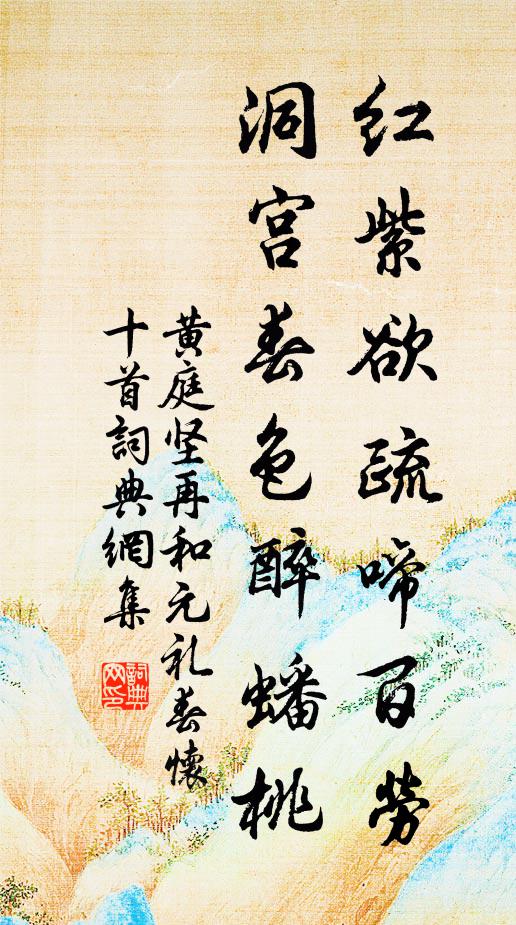 红紫欲疏啼百劳
洞宫春色醉蟠桃
黄庭坚再和元礼春怀
十首詞典網集
詞典網印